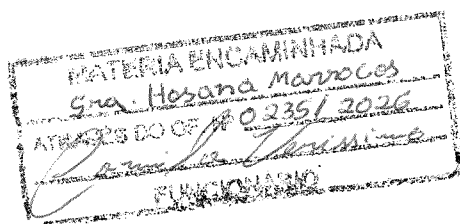 MATERIA ENCAMINHADA
Sra. Hosana Marrocos
ATRAVÉS DO OF Nº 0235/2026
Camila Venissimo
FUNCIONARIO